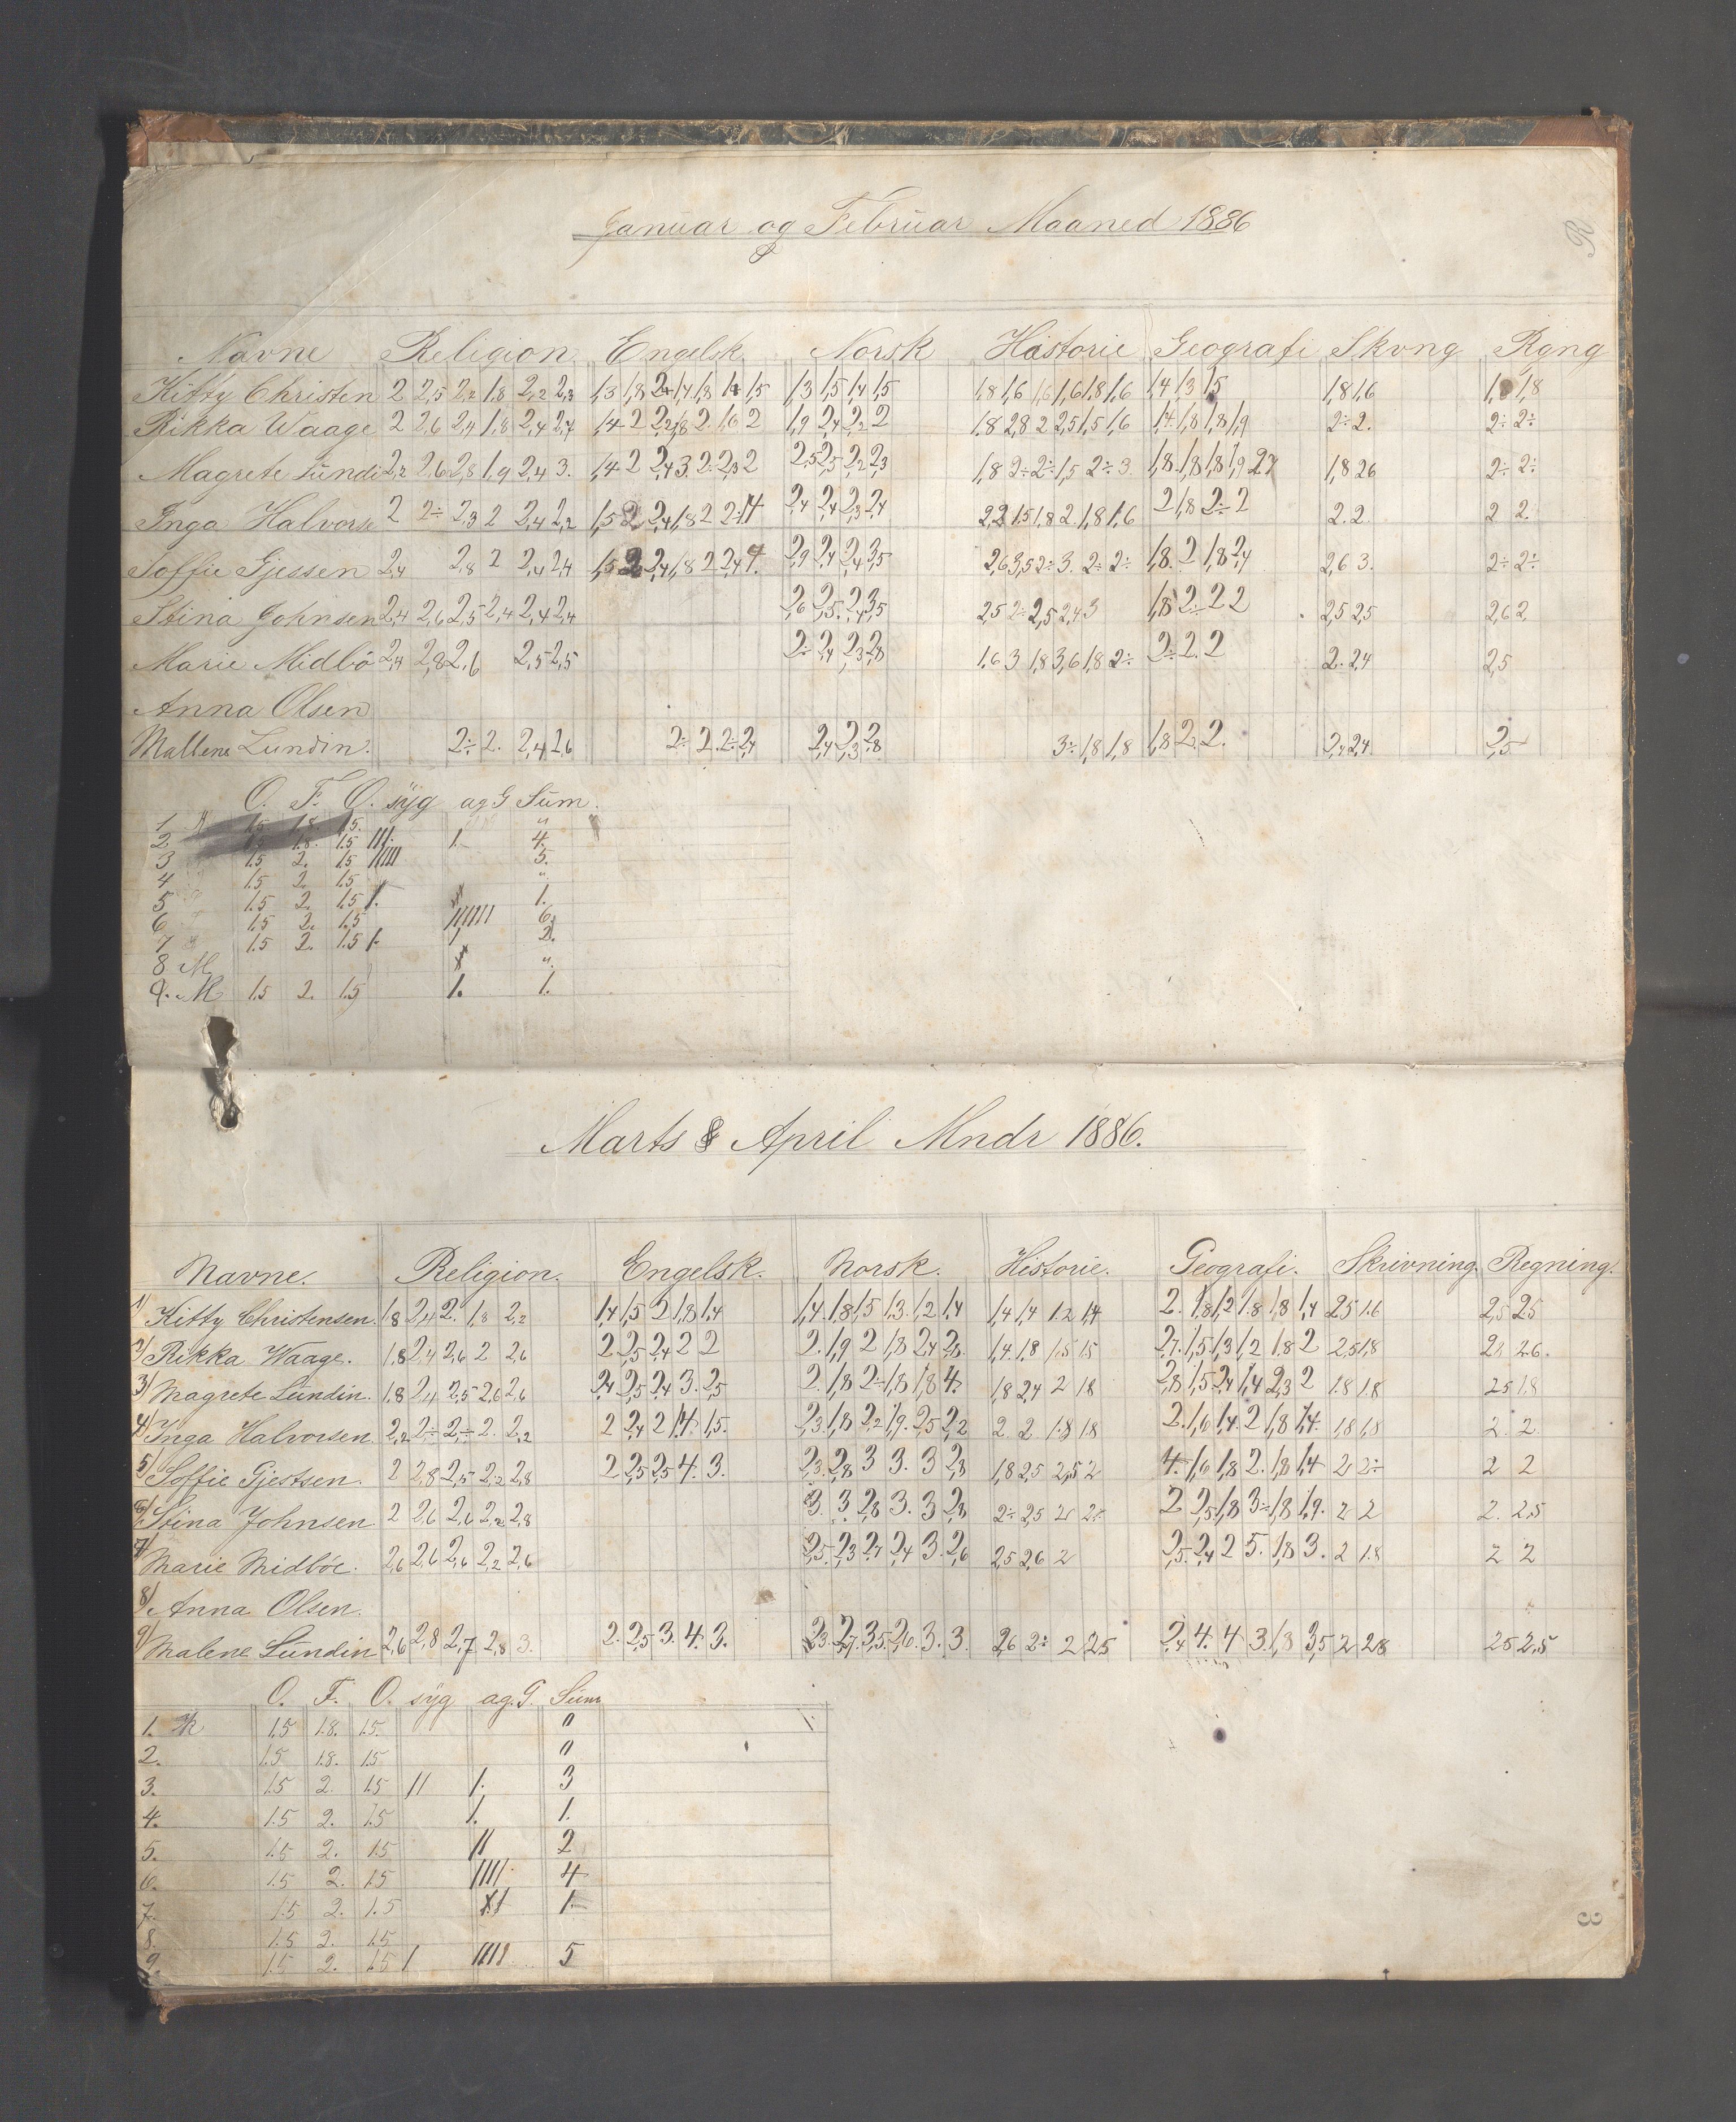 Januar og Februar Maaned 1886
Navne Religion Engelsk Norsk Historie Geografi Skvng Rgng
Kitty Christen 2 2,5 2,2 1,8 2,2 2,3 1,3 1,5 1,4 1,5 1,4 1,3 1,5 1,8 1,6
Rikka Waage 2 2,6 2,4 1,8 2,4 2,4 1,4 2 2,2 1,8 2. 1,6 2 1,9 2,4 2,2 2 1.8 2,8 2 2,5 1,5 1,6 1,4. 1,8 1,8 1,9 2÷ 2. 2÷ 2÷
Magrete Lundi 2,2 2,6 2,8 1,9 2,4 3. 1,4 2 2,4 3. 2. 2,3 2 2,5 2,5 2,2 2,3 1,8 2÷ 2÷ 1,5 2÷ 3. 1,8. 1,8 1,8 1,9 2,7 1,8 2,6 2÷ 2÷
Inga Halvors 2 2÷ 2,3 2 2,4 2,2 2,4 2,4 2,3 2,4 2,2 1,5 1,8 2. 1,8 1,6 2 1,8 2÷ 2 2. 2. 2 2.
Soffie Gjessen 2,4 2,8 2 2,4 2,4 2,9 2,4 2,4 3,5 2,6 3,5 2÷ 3. 2÷ 2÷ 1,8. 2 1,8 2,4 2,6 3. 2÷ 2÷
Stina Johnsen 2,4 2,6 2,5 2,4 2,4 2,4 2,6 2,5. 2,4 3,5 2,5 2÷ 2,5 2,4 3 1,8 2÷ 2 2 2,5 2,5 2,6 2
Marie Midbö 2,4 2,8 2,6 2,5 2,5 2÷ 2,4 2,3 2,8 1.6 3 1,8 3,6 1,8 2÷ 2÷ 2. 2 2. 2,4 2,5
Anna Olsen
Mallene Lundin. 2÷ 2. 2,4 2,6 2÷ 2. 2÷ 2,4 2,4 2,3 2,8 3÷ 1,8 1,8 1,8 2. 2. 2,2 2,4 2,5
O. F. O. syg ag G Sum.
1 1.5 1.8. 1.5. "
2. 1.5 1.8. 1.5 III. 1. 4.
3 1.5 2. 1.5 IIIII 5.
4 1.5 2. 1.5 "
5 1.5 2. 1.5 1. 1.
6 1.5 2. 1.5 IIIIII 6.
7 1.5 2. 1.5 1. 1 2.
8 M ".
9. M 1.5 2. 1.5 1. 1.
Marts & April Mndr 1886.
Navne. Religion. Engelsk. Norsk. Historie. Geografi. Skrivning. Regning.
1) Kitty Christensen. 1.8 2,4 2. 1,8 2,2 1,4 1,5 2 1,8 1,4 1,4. 1,8 1,5 1,3. 1,2 1,4 1,4 1,4 1.2 1,4 2. 1,8 1,2 1.8 1,8 1,4 2,5 1.6 2,5 2,5
2) Rikka Waage. 1.8 2,4 2,6 2 2,6 2 2,5 2,4 2 2 2. 1,9 2 1,8 2,4 2,8. 1,4. 1,8 1,5 1,5 2,7. 1,5 1,3 1,2 1.8 2 2,5 1,8 2,6.
3) Magrete Lundin. 1.8 2,4 2,5 2,6 2,6 2,4 2,5 2,4 3. 2,5 2. 1,8 2÷ 1,8 1,8 4. 1,8 2,4 2 1,8 2,8 1,5 2,4 1,4 2,3 2 1.8 1.8 2,5 1.8
4) Inga Halvorsen. 2,2 2÷ 2÷ 2. 2,2 2 2,4 2 1,4 1,5. 2,3. 1,8 2,2 1,9. 2,5 2,2 2. 2. 1.8 1.8 2. 1,6 1,4. 2 1,8 1,4. 1,8 1,8 2. 2.
5) Soffie Gjestsen. 2 2,8 2,5 2,2 2,8 2 2,5 2,5 4. 3. 2,3. 2,8 3 3. 3 2,8 1,8 2,5 2,5 2 4. 1,6 1,8 2. 1,8 1,4 2 2÷ 2 2
6) Stina Johnsen. 2 2,6 2,6 2,2 2,8 3. 3 2,8 3. 3 2,8 2÷ 2,5 2 2÷ 2 2,5 1,8 3÷ 1,8 1,9. 2 2 2. 2,5
7) Marie Midböe. 2,6 2,6 2,6 2,2 2,6 2,5. 2,3 2,4 2,4 3. 2,6 2,5 2,6 2 2,5. 2,4 2 5. 1,8 3. 2 1.8 2 2
8) Anna Olsen.
9) Malene Lundin 2,6 2,8 2,7 2,8 3. 2. 2,5 3. 4. 3. 2,3. 2,7 3,5. 2,6. 3. 3. 2,6 2÷ 2 2,5 2,4 4. 4 3 1,3 3,5 2 2,8 2,5 2,5
O. F. O. syg ag. G. Sum
1. K 1.5 1.8. 1.5. "
2. 1.5 1.8. 1.5 "
3. 1.5 2. 1.5 II 1. 3
4. 1.5 2. 1.5 1. 1.
5. 1.5 2. 1.5 II 2
6. 1.5 2. 1.5 IIII 4
7. 1.5 2. 1.5 1
8. 1.5 2. 1.5
9. 1.5 2. 1.5 I IIII 5
3